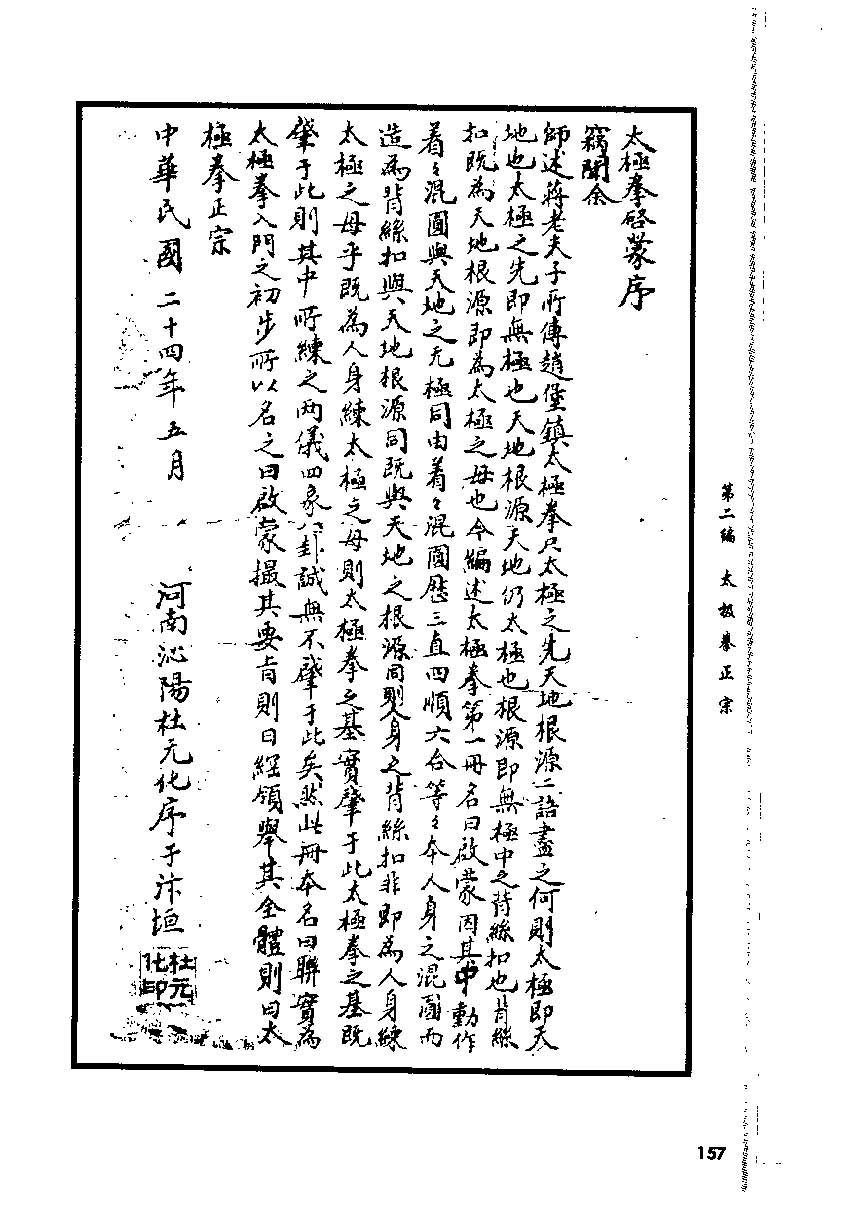 太極拳啓蒙序
竊聞余
師述蔣老夫子所傳趙堡鎮太極拳只太極之先天地根源二語盡之何則太極即天
地也太極之先即無極也天地根源天地仍太極也根源即無極中之背絲扣也背絲
扣既為天地根源即為太極之母也今編述太極拳第一冊名曰啟蒙因其中動作
着々混圓與天地之无極同由着々混圓歷三直四順六合等々本人身之混圓而
造為背絲扣與天地根源同既與天地之根源同則人身之背絲扣非即為人身練
太極之母乎既為人身練太極之母則太極拳之基實肇于此太極拳之基既
肇于此則其中所練之兩儀四象八卦誠無不肇于此矣然此冊本名曰聯實為
太極拳入門之初步所以名之曰啟蒙撮其要旨則曰經領舉其全體則曰太
極拳正宗
中華民國二十四年五月 河南沁陽杜元化序于汴垣
杜元化印
第二編 太极拳正宗
157